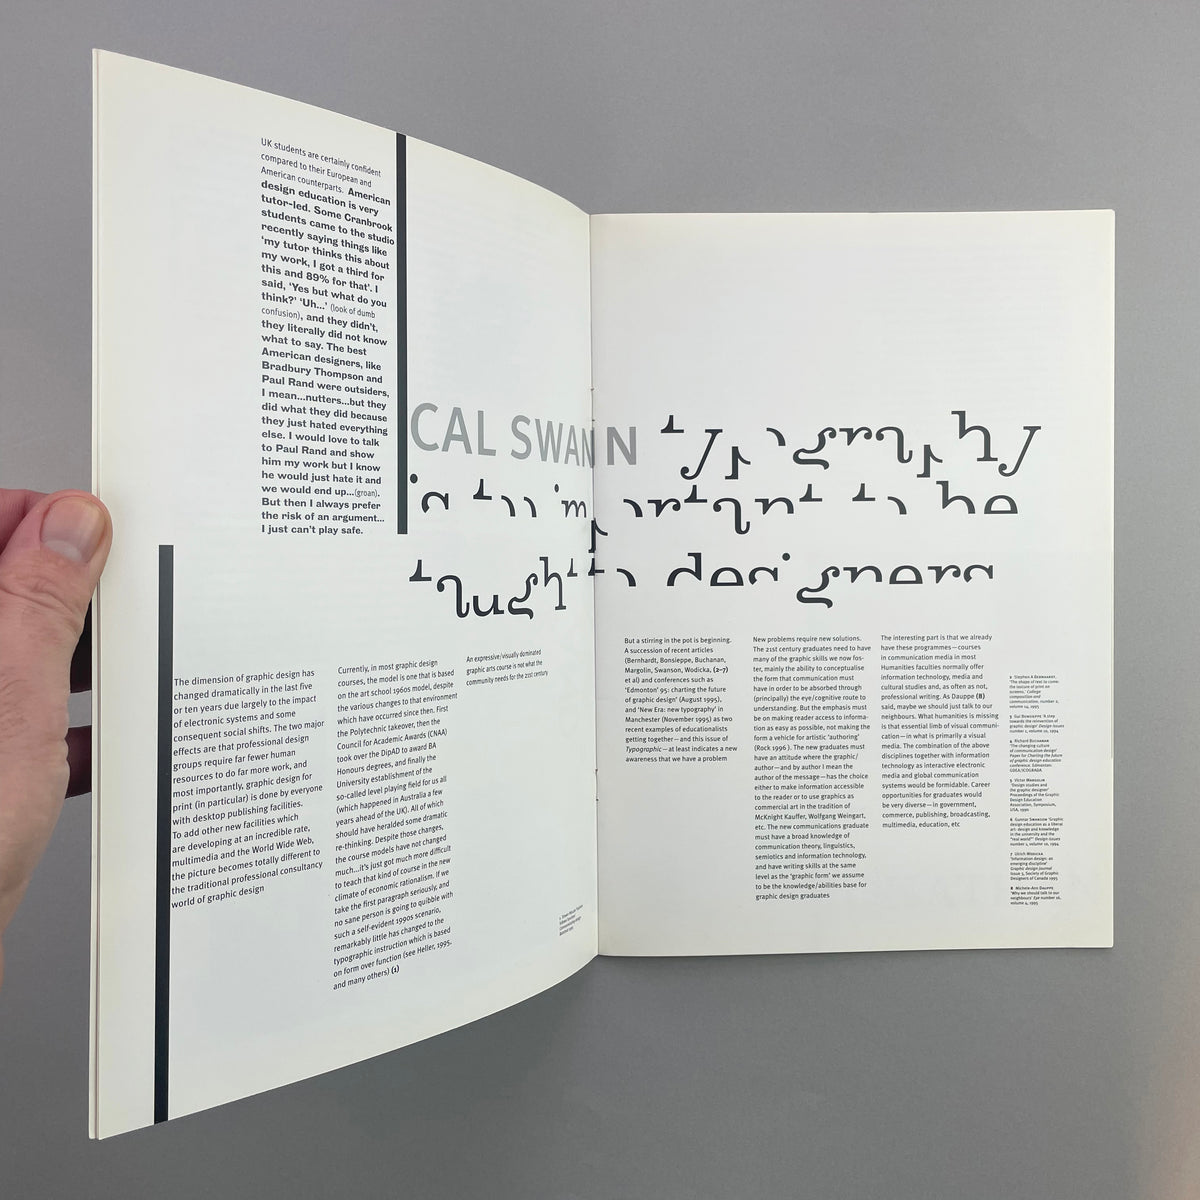 UK students are certainly confident
compared to their European and
American counterparts. American
design education is very
tutor-led. Some Cranbrook
students came to the studio
recently saying things like
‘my tutor thinks this about
my work, I got a third for
this and 89% for that’. I
said, ‘Yes but what do you
think?’ ‘Uh...’ (look of dumb
confusion), and they didn’t,
they literally did not know
what to say. The best
American designers, like
Bradbury Thompson and
Paul Rand were outsiders,
I mean...nutters...but they
did what they did because
they just hated everything
else. I would love to talk
to Paul Rand and show
him my work but I know
he would just hate it and
we would end up...(groan).
But then I always prefer
the risk of an argument...
I just can’t play safe.
CAL SWANN typography
is too important to be
taught to designers
The dimension of graphic design has
changed dramatically in the last five
or ten years due largely to the impact
of electronic systems and some
consequent social shifts. The two major
effects are that professional design
groups require far fewer human
resources to do far more work, and
most importantly, graphic design for
print (in particular) is done by everyone
with desktop publishing facilities.
To add other new facilities which
are developing at an incredible rate,
multimedia and the World Wide Web,
the picture becomes totally different to
the traditional professional consultancy
world of graphic design
Currently, in most graphic design
courses, the model is one that is based
on the art school 1960s model, despite
the various changes to that environment
which have occurred since then. First
the Polytechnic takeover, then the
Council for Academic Awards (CNAA)
took over the DipAD to award BA
Honours degrees, and finally the
University establishment of the
so-called level playing field for us all
(which happened in Australia a few
years ahead of the UK). All of which
should have heralded some dramatic
re-thinking. Despite those changes,
the course models have not changed
much...it’s just got much more difficult
to teach that kind of course in the new
climate of economic rationalism. If we
take the first paragraph seriously, and
no sane person is going to quibble with
such a self-evident 1990s scenario,
remarkably little has changed to the
typographic instruction which is based
on form over function (see Heller, 1995,
and many others) (1)
An expressive/visually dominated
graphic arts course is not what the
community needs for the 21st century
But a stirring in the pot is beginning.
A succession of recent articles
(Bernhardt, Bonsieppe, Buchanan,
Margolin, Swanson, Wodicka, (2–7)
et al) and conferences such as
‘Edmonton’ 95: charting the future
of graphic design’ (August 1995),
and ‘New Era: new typography’ in
Manchester (November 1995) as two
recent examples of educationalists
getting together—and this issue of
Typographic—at least indicates a new
awareness that we have a problem
New problems require new solutions.
The 21st century graduates need to have
many of the graphic skills we now fos-
ter, mainly the ability to conceptualise
the form that communication must
have in order to be absorbed through
(principally) the eye/cognitive route to
understanding. But the emphasis must
be on making reader access to informa-
tion as easy as possible, not making the
form a vehicle for artistic ‘authoring’
(Rock 1996 ). The new graduates must
have an attitude where the graphic/
author—and by author I mean the
author of the message—has the choice
either to make information accessible
to the reader or to use graphics as
commercial art in the tradition of
McKnight Kauffer, Wolfgang Weingart,
etc. The new communications graduate
must have a broad knowledge of
communication theory, linguistics,
semiotics and information technology,
and have writing skills at the same
level as the ‘graphic form’ we assume
to be the knowledge/abilities base for
graphic design graduates
The interesting part is that we already
have these programmes—courses
in communication media in most
Humanities faculties normally offer
information technology, media and
cultural studies and, as often as not,
professional writing. As Dauppe (8)
said, maybe we should just talk to our
neighbours. What humanities is missing
is that essential limb of visual communi-
cation—in what is primarily a visual
media. The combination of the above
disciplines together with information
technology as interactive electronic
media and global communication
systems would be formidable. Career
opportunities for graduates would
be very diverse—in government,
commerce, publishing, broadcasting,
multimedia, education, etc
2 Stephen A Bernhardt,
‘The shape of text to come:
the texture of print on
screens,’ College
composition and
communication, number 2,
volume 14, 1993
3 Gui Bonsieppe ‘A step
towards the reinvention of
graphic design’ Design Issues
number 1, volume 10, 1994
4 Richard Buchanan
‘The changing culture
of communication design’
Paper for Charting the future
of graphic design education
conference. Edmonton:
GDEA/ICOGRADA
5 Victor Margolin
‘Design studies and
the graphic designer’
Proceedings of the Graphic
Design Education
Association, Symposium,
USA, 1990
6 Gunnar Swanson ‘Graphic
design education as a liberal
art: design and knowledge
in the university and the
“real world”’ Design Issues
number 1, volume 10, 1994
7 Ulrich Wodicka
‘Information design: an
emerging discipline’
Graphic design journal
Issue 3, Society of Graphic
Designers of Canada 1995
8 Michele-Ann Dauppe
‘Why we should talk to our
neighbours’ Eye number 16,
volume 4, 1995